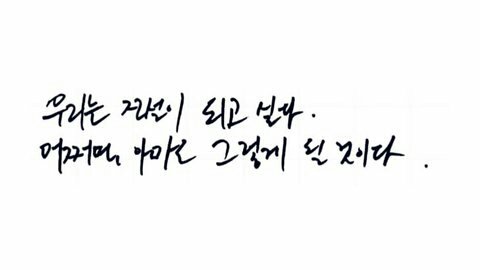 우리는 되고 싶다.
어쩌면, 아마도 그렇게 될 것이다.